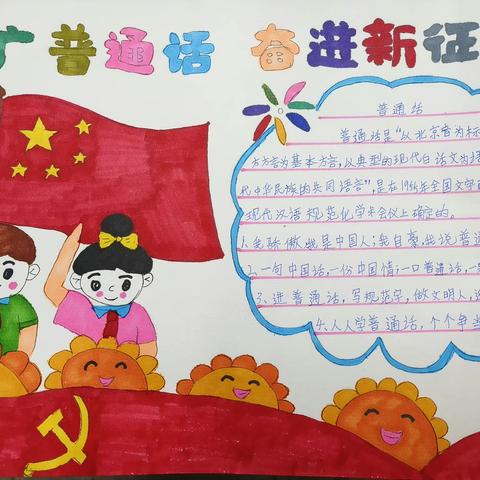 广普通话 奋进新征
普通话
普通话是“从北京音为标
方方言为基本方言,从典型的现代白话文为语
代中华民族的共同语言”,是在1956年全国文字
现代汉语规范化学术会议上确定的。
1.我骄傲我是中国人;我自豪我说普通
2.一句中国话,一份中国情;一口普通话,一
3、进普通话,写规范字,做文明人,
4、人人学普通话,个个争当